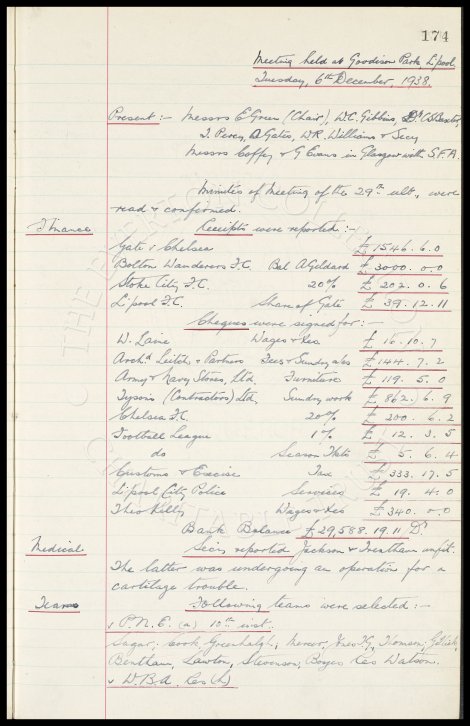 174
Meeting held at Goodison Park, L'pool,
Tuesday, 6th December, 1938.
Present :- Messrs E. Green (Chair), W.C. Gibbins, Dr C.S. Baxter,
T. Percy, A. Gates, W.R. Williams & Secy
Messrs Coffey & G. Evans in Glasgow with S.F.A.
Minutes of Meeting of the 29th ult., were
read & confirmed.
Finance Receipts were reported :-
Gate v Chelsea £1546. 6. 0
Bolton Wanderers F.C. Bal A Geldard £3000. 0. 0
Stoke City F.C. 20% £ 202. 0. 6
L'pool F.C. Share of Gate £ 39. 12. 11
Cheques were signed for :-
W. Wages &c £ 10. 7
Archd Leitch & Partners Fees & Sundry £144. 7. 2
Army & Navy Stores, Ltd, Furniture £ 119. 5. 0
Tysons (Contractors) Ltd, Sundry work £862. 6. 9
Chelsea F.C. 20% £ 200. 6. 2
Football League 1% £ 12. 3. 5
do Season Tkts £ 5. 6. 4
Customs & Excise Tax £333. 17. 5
L'pool City Police Services £ 19. 4. 0
Theo Kelly Wages &c £ 340. 0. 0
Bank Balance £29,588. 19. 11 Dr
Medical Secy, reported Jackson & Trentham unfit.
The latter was undergoing an operation for a
cartilage trouble.
Teams Following teams were selected :-
v P.N.E. (a) 10th inst.
Sagar; Cook, Greenhalgh; Mercer, Jones T.G., Thomson; Gillick,
Bentham, Lawton, Stevenson, Boyes Res Watson.
v W.B.A. Res (h)